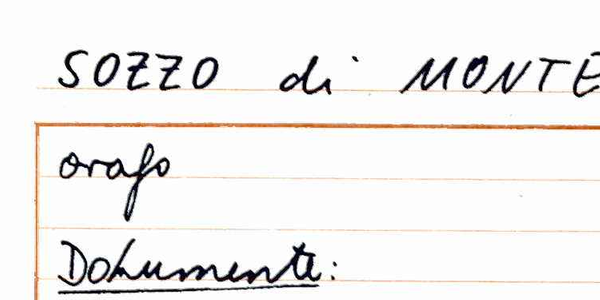 SOZZO di MONTE
orafo
Dokumente: